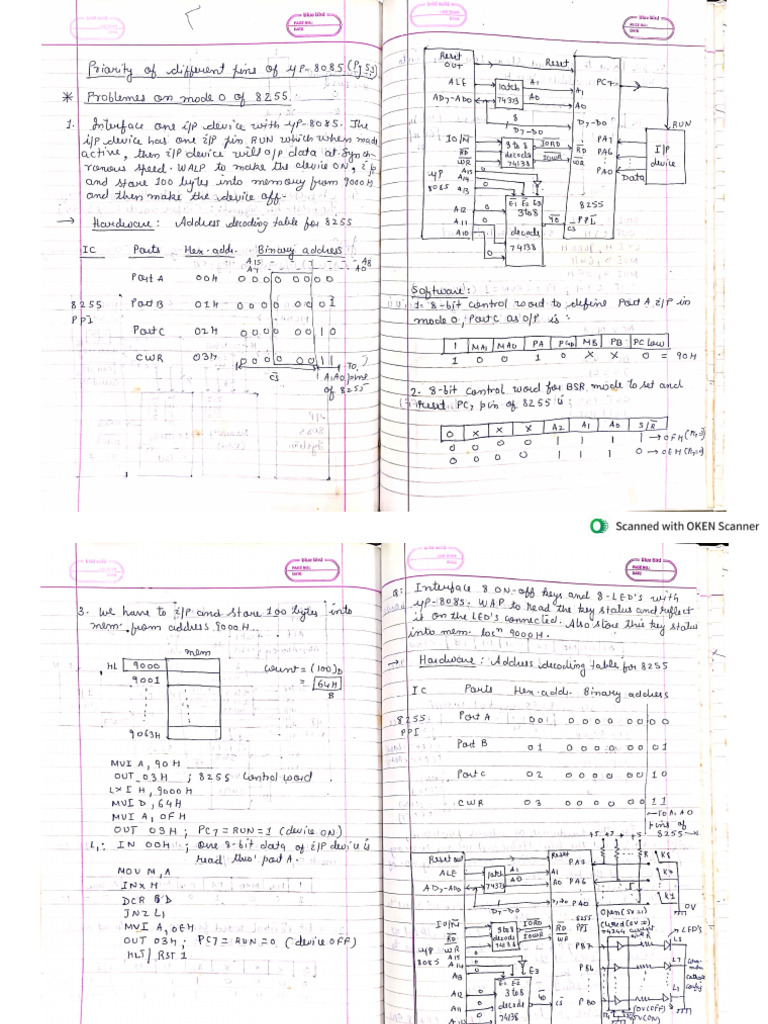 blue bird
PAGE NO.:
DATE
Priority of different pins of μP-8085 (Pg 53)
* Problemes on mode 0 of 8255.
1. Interface one i/p device with μP-8085. The
i/p device has one i/p pin RUN which when made
active, then i/p device will o/p data at synch-
ronous speed. WALP to make the device ON, i/p
and store 100 bytes into memory from 9000H
and then make the device off.
→ Hardware: Address decoding table for 8255
IC Ports Hex. add. Binary address
A15 A8
A7 A0
Port A 00H 0 0 0 0 0 0 0 0
8255 Port B 01H 0 0 0 0 0 0 0 1
PPI
Port C 02H 0 0 0 0 0 0 1 0
CWR 03H 0 0 0 0 0 0 1 1
CS
TO
A1A0 pins
of 8255
blue bird
PAGE NO.:
DATE
Reset
OUT
Reset
PC7
ALE
latch
74373
A1
A0
A1
A0
AD7-AD0
8
D7-D0
D7-D0
RUN
IO/M
RD
WR
3 to 8
decode
74138
IORD
IOWR
RD
WR
PA7
PA6
PA0
I/P
device
Data
μP
8085
A15
A14
A13
0
8255
PPI
A12
A11
A10
0
0
0
E1 E2 E3
3 to 8
decode
74138
Y0
CS
Software:
1. 8-bit control word to define Port A i/p in
mode 0, Port C as o/p is:
1 MA1 MA0 PA PCu MB PB PC low
1 0 0 1 0 X X 0 = 90H
2. 8-bit control word for BSR mode to set and
reset PC7 pin of 8255 is:
0 X X X A2 A1 A0 S/R
0 0 0 0 1 1 1 1 → 0FH
0 0 0 0 1 1 1 0 → 0EH
Scanned with OKEN Scanner
blue bird
PAGE NO.:
DATE
3. We have to i/p and store 100 bytes into
mem. from address 9000H.
mem
HL 9000
9001
9063H
count = (100)D
= 64H
B
MVI A, 90H
OUT 03H ; 8255 control word
LXI H, 9000H
MVI D, 64H
MVI A, 0FH
OUT 03H ; PC7 = RUN = 1 (device ON)
L1: IN 00H ; one 8-bit data of i/p device is
read thro' port A.
MOV M, A
INX H
DCR D
JNZ L1
MVI A, 0EH
OUT 03H ; PC7 = RUN = 0 (device OFF)
HLT / RST 1
blue bird
PAGE NO.:
DATE
Q: Interface 8 ON-off keys and 8-LED's with
μP-8085. WAP to read the key status and reflect
it on the LED's connected. Also store this key status
into mem. locn 9000H.
→ Hardware: Address decoding table for 8255
IC Ports Hex. add. Binary address
8255 Port A 00 0 0 0 0 0 0 0 0
PPI
Port B 01 0 0 0 0 0 0 0 1
Port C 02 0 0 0 0 0 0 1 0
CWR 03 0 0 0 0 0 0 1 1
→ TO A1 A0
pins of
8255
+5 +5
R
Reset out
Reset
PA7
K8
ALE
latch
74373
A1
A0
A1
A0
PA6
K7
AD7-AD0
D7-D0
PA0
K1
0V
IO/M
RD
WR
3 to 8
decode
74138
IORD
IOWR
RD
WR
8255
PPI
Open (5V=1)
closed (0V=0)
LED's
PB7
L8
μP
8085
A15
A14
A13
E3
PB6
L7
Common
cathode
config
A12
A11
E1 E2
3 to 8
decode
74138
Y0
CS
PB0
L1
0V (OFF)
5V (ON)